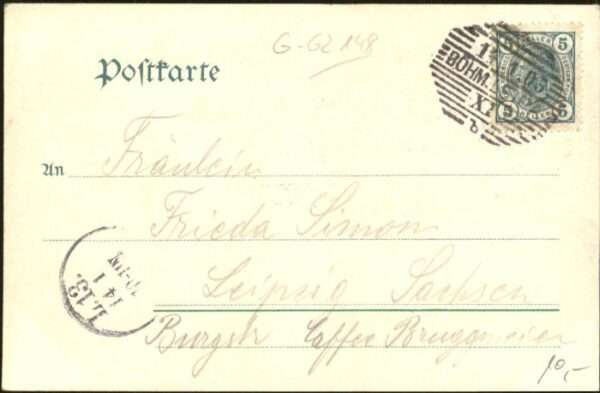 G-GZ 148
Postkarte
5 5
BÖHM.
XI
5
An
Fräulein
Frieda Simon
Leipzig Sachsen
Burgstr Caffee
L.13.
14 1
10,-